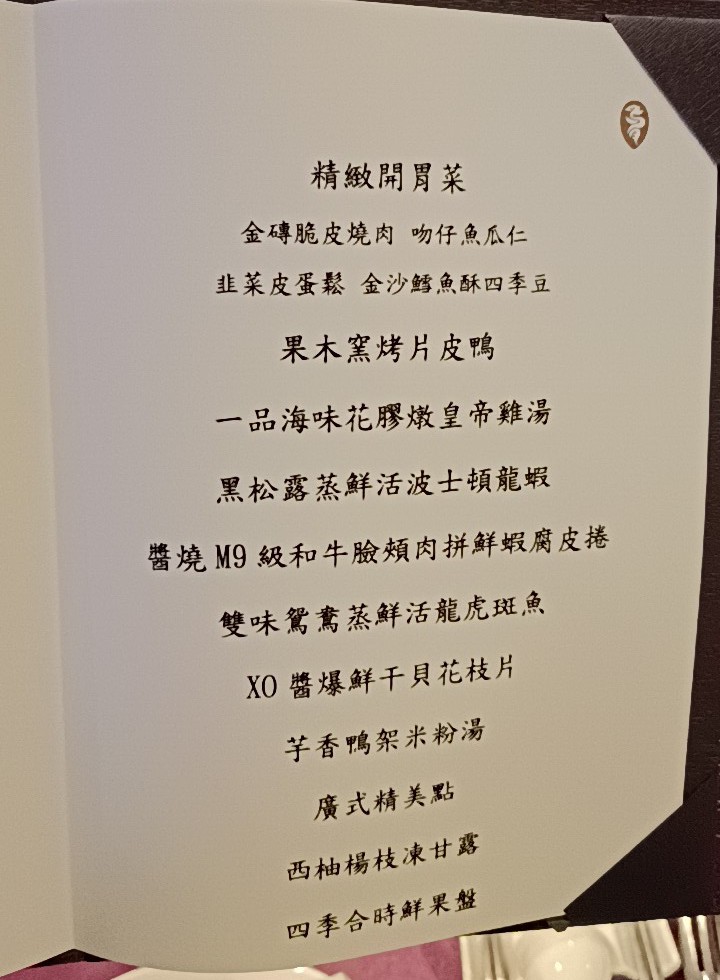 精緻開胃菜
金磚脆皮燒肉 吻仔魚瓜仁
韭菜皮蛋鬆 金沙鱈魚酥四季豆
果木窯烤片皮鴨
一品海味花膠燉皇帝雞湯
黑松露蒸鮮活波士頓龍蝦
醬燒 M9 級和牛臉頰肉拼鮮蝦腐皮捲
雙味鴛鴦蒸鮮活龍虎斑魚
XO 醬爆鮮干貝花枝片
芋香鴨架米粉湯
廣式精美點
西柚楊枝凍甘露
四季合時鮮果盤